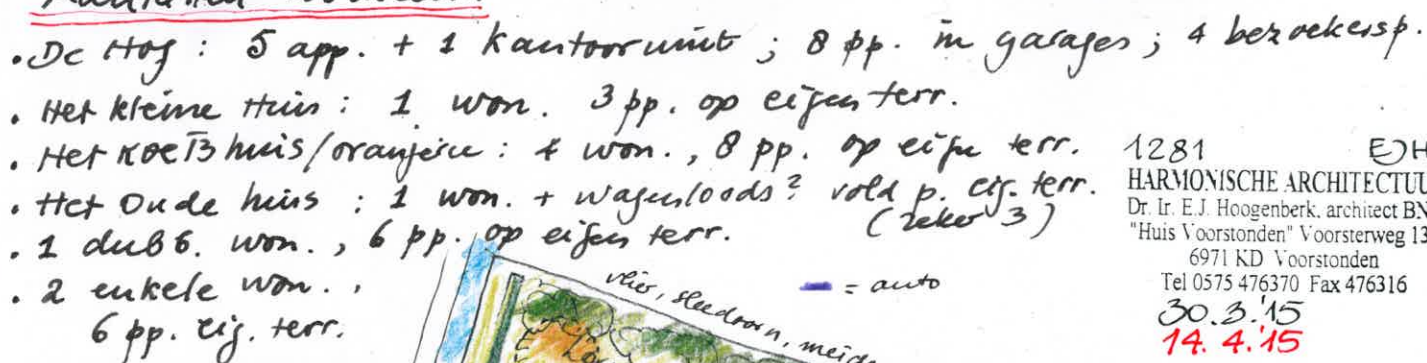 • De Hof : 5 app. + 1 kantoorunit ; 8 pp. in garages ; 4 bezoekersp.
• Het kleine Huis : 1 won. 3 pp. op eigen terr.
• Het Koetshuis/oranjerie : 4 won., 8 pp. op eigen terr.
• Het Oude huis : 1 won. + wagenloods? vold p. eig. terr.
(zeker 3)
• 1 dubb. won., 6 pp. op eigen terr.
• 2 enkele won.,
6 pp. eig. terr.
vlier, sleedoorn, meid
= auto
1281 EJH
HARMONISCHE ARCHITECTUU
Dr. Ir. E.J. Hoogenberk, architect BN
"Huis Voorstonden" Voorsterweg 13
6971 KD Voorstonden
Tel 0575 476370 Fax 476316
30.3.'15
14.4.'15